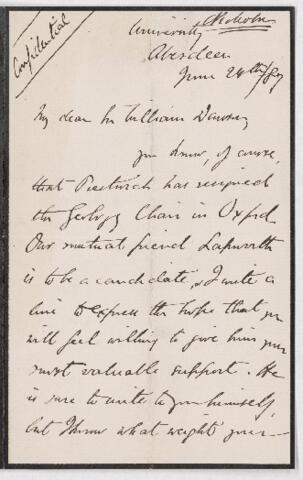 Confidential
Nicholson
University
Aberdeen
June 24th/87
My dear Sir William Dawson
you know, of course,
that Prestwich has resigned
the Geology Chair in Oxford.
Our mutual friend Lapworth
is to be a candidate, & I write a
line to express the hope that you
will feel willing to give him your
most valuable support. He
is sure to write to you himself,
but I know what weight your